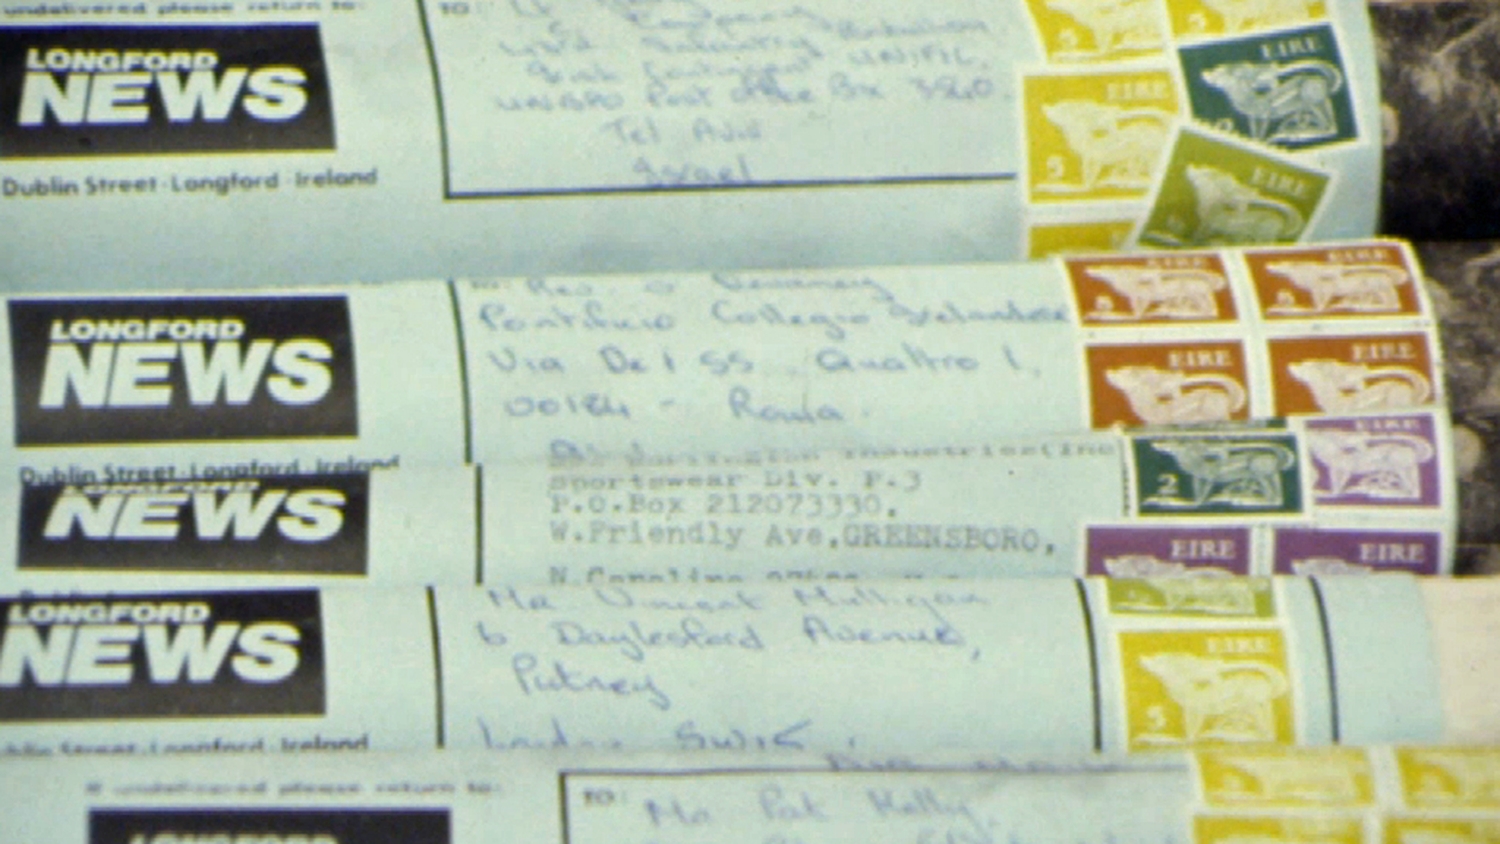 undelivered please return to:
LONGFORD
NEWS
Dublin Street · Longford · Ireland
TO:
Company
43rd Infantry Battalion
Irish Contingent UNIFIL,
UNDPO Post Office Box
Tel Aviv
Israel
5
5
EIRE
5
EIRE
EIRE
LONGFORD
NEWS
Dublin Street · Longford · Ireland
Rev. O
Pontificio Collegio Irlandese
Via Dei SS. Quattro 1,
00184 - Roma.
EIRE
EIRE
EIRE
EIRE
NEWS
Industries (Inc
Sportswear Div. P.3
P.O.Box 212073330,
W.Friendly Ave,GREENSBORO,
N.Carolina
2
EIRE
EIRE
EIRE
LONGFORD
NEWS
Dublin Street · Longford · Ireland
Mr Vincent Mulligan
6 Daylesford Avenue,
Putney
London SW15
EIRE
5
If undelivered please return to:
LONGFORD
TO:
Mr Pat Kelly,